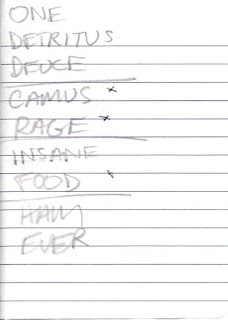 ONE
DETRITUS
DEUCE
CAMUS x
RAGE x
INSANE
FOOD x
EVER